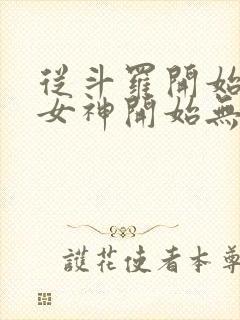 從斗羅開始
女神開始無
護花使者本尊